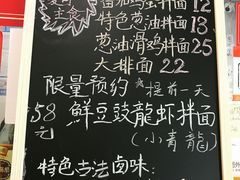 主食
番茄鸡蛋拌面 12
特色葱油拌面 13
葱油滑鸡拌面 25
大排面 22
限量预约 提前一天
58元 鮮豆豉龍虾拌面
(小青龍)
特色古法卤味: